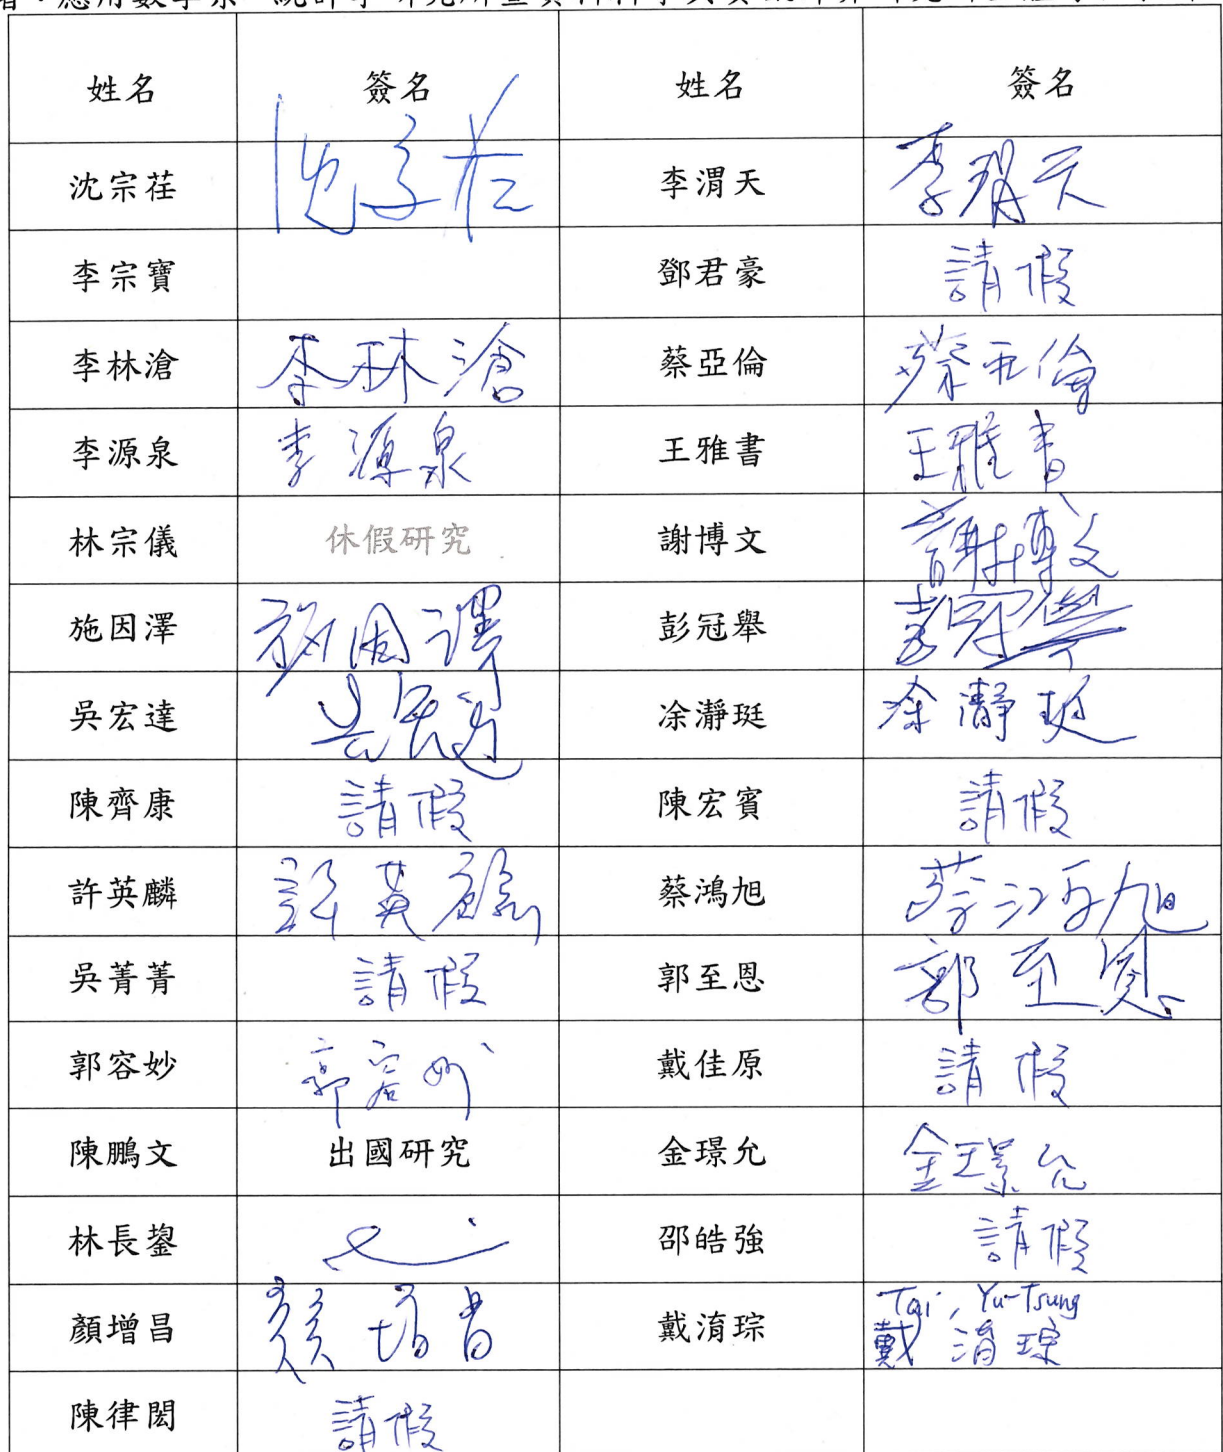 姓名 簽名 姓名 簽名
沈宗荏 沈宗荏 李渭天 李渭天
李宗寶 鄧君豪 請假
李林滄 李林滄 蔡亞倫 蔡亞倫
李源泉 李源泉 王雅書 王雅書
林宗儀 休假研究 謝博文 謝博文
施因澤 施因澤 彭冠舉 彭冠舉
吳宏達 吳宏達 凃瀞珽 凃瀞珽
陳齊康 請假 陳宏賓 請假
許英麟 許英麟 蔡鴻旭 蔡鴻旭
吳菁菁 請假 郭至恩 郭至恩
郭容妙 郭容妙 戴佳原 請假
陳鵬文 出國研究 金璟允 金璟允
林長鋆 邵皓強 請假
顏增昌 顏增昌 戴淯琮 Tai, Yu-Tsung
戴淯琮
陳律閎 請假